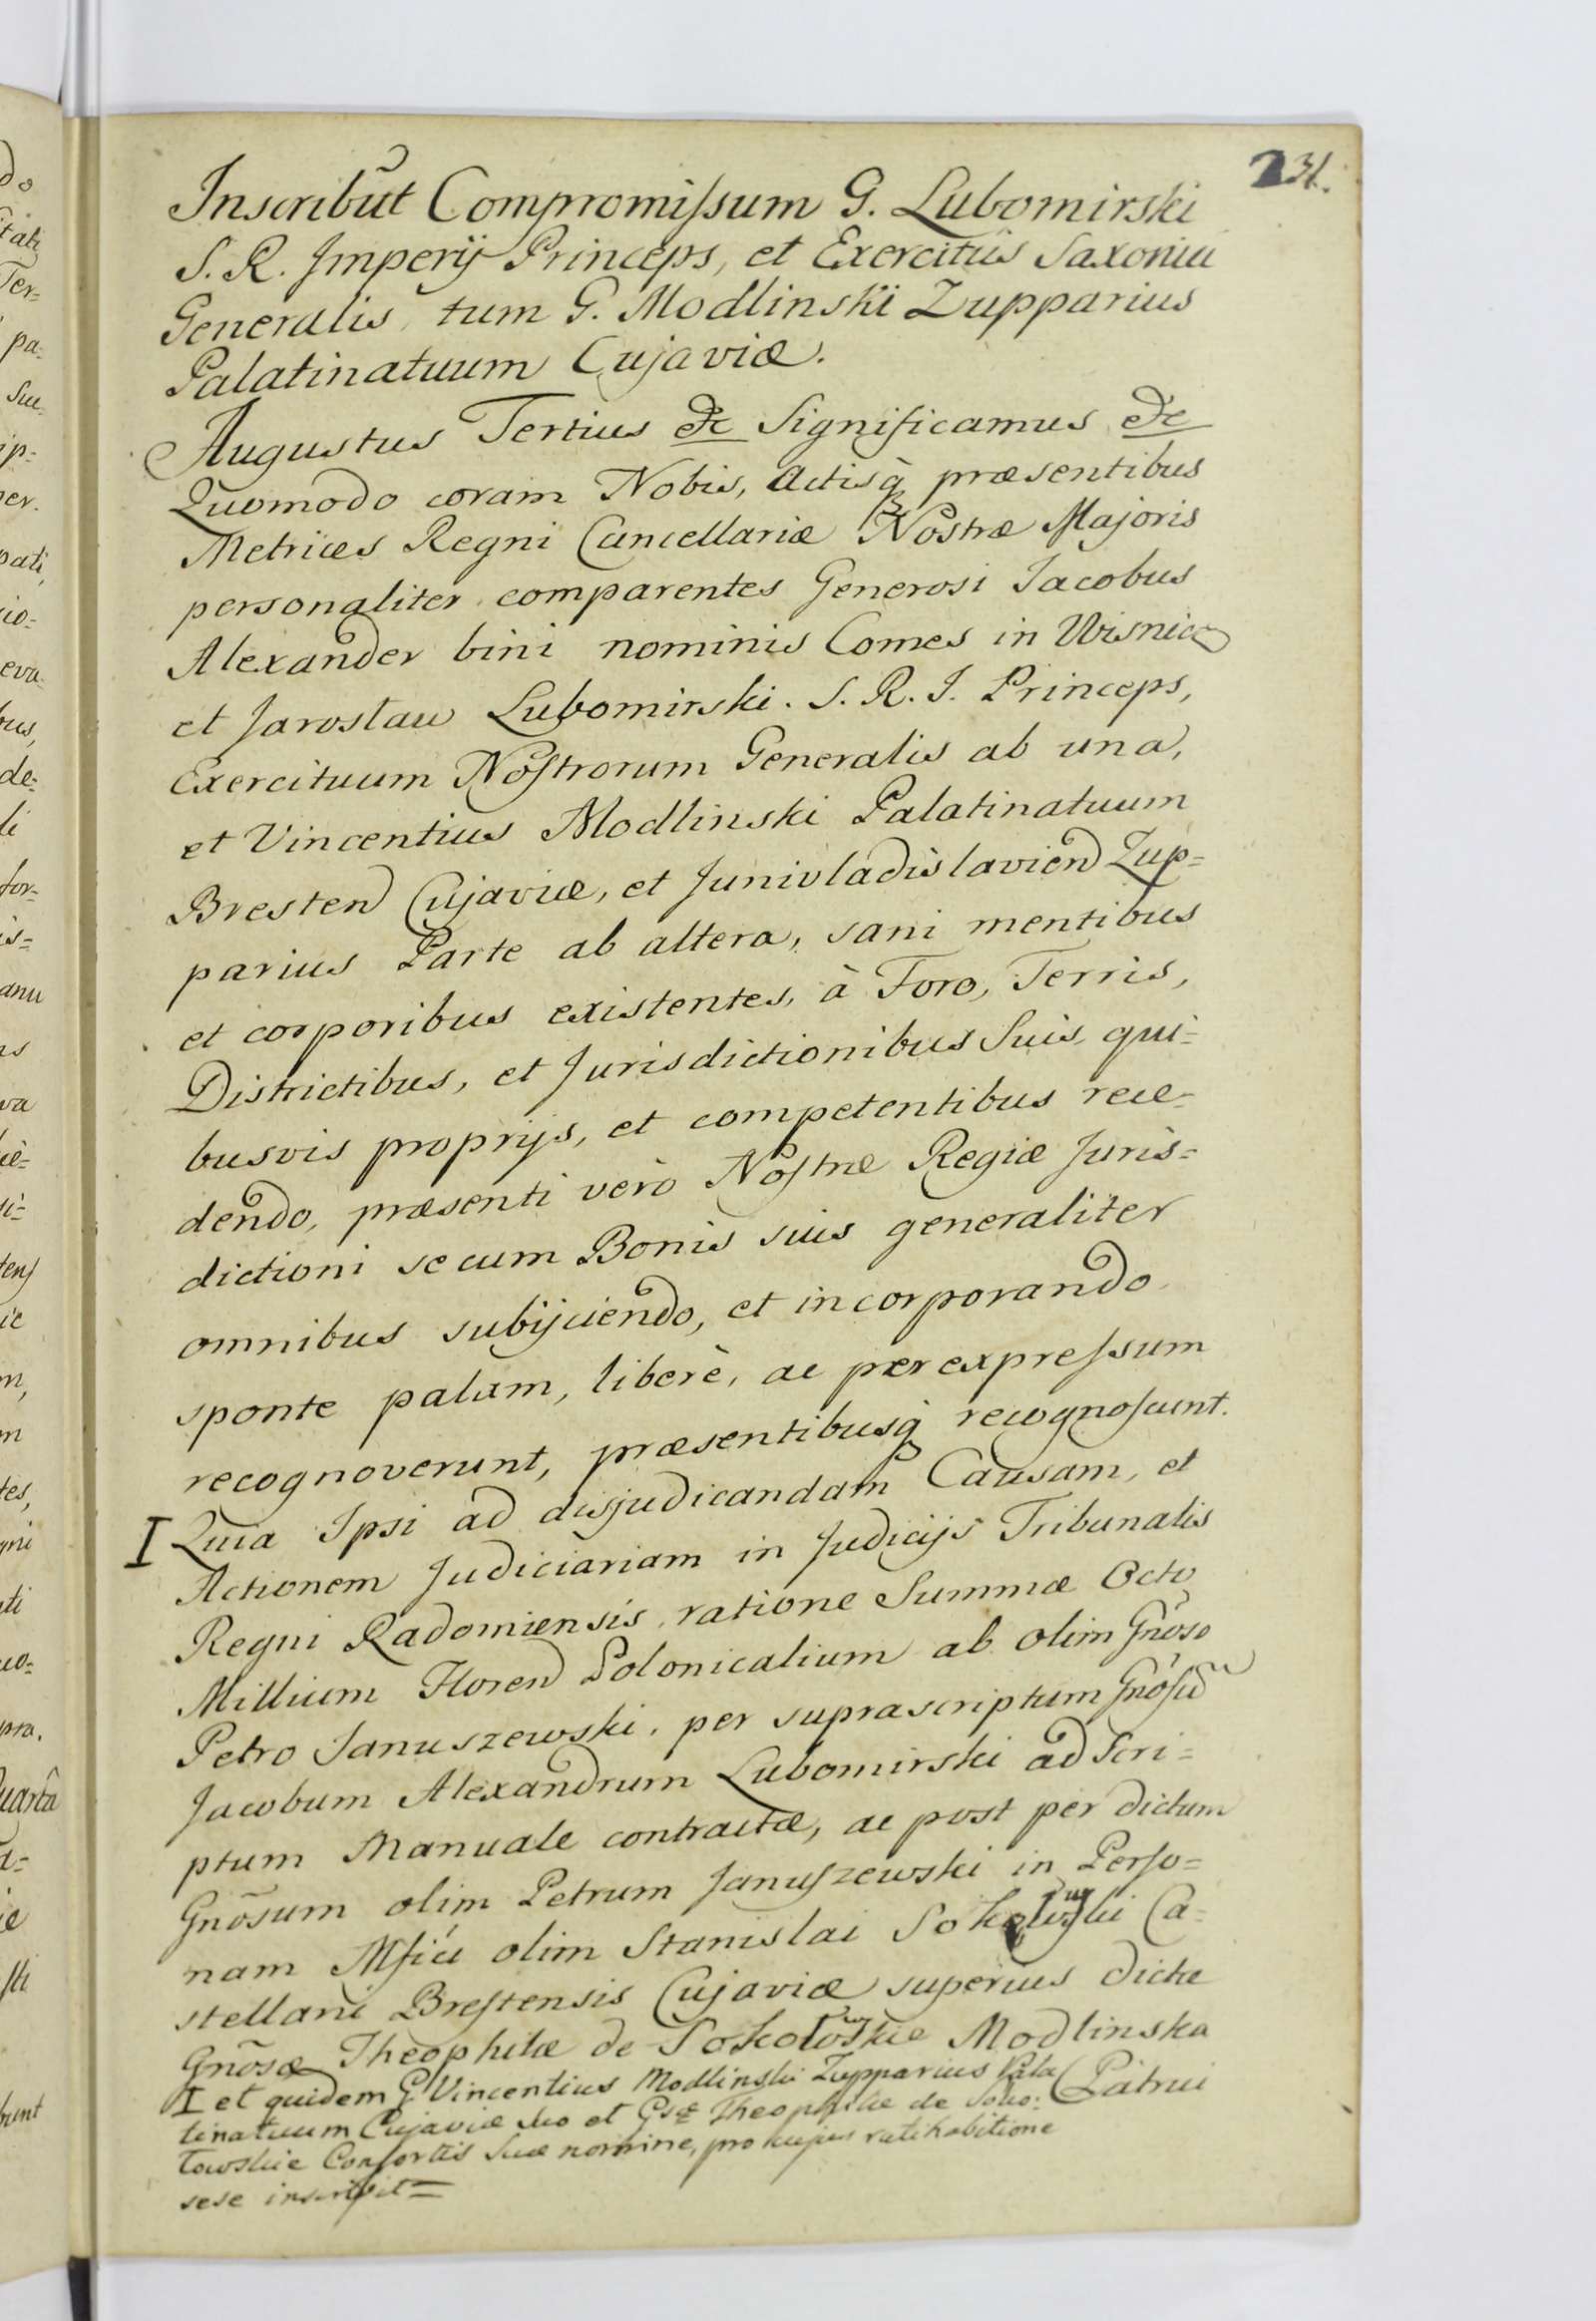 231.
Inscribūt Compromissum G. Lubomirski
S. R. Imperij Princeps, et Exercitûs Saxonici
Generalis, tum G. Modlinski Zupparius
Palatinatuum Cujaviæ.
Augustus Tertius &c Significamus &c
Quomodo coram Nobis, Actisq̀ præsentibus
Metrices Regni Cancellariæ Nostræ Majoris
personaliter comparentes Generosi Jacobus
Alexander bini nominis Comes in Wisnicz
et Jaroslau Lubomirski. S. R. I. Princeps,
Exercituum Nostrorum Generalis ab una,
et Vincentius Modlinski Palatinatuum
Bresten Cujaviæ, et Junivladislavien Zup=
parius Parte ab altera, sani mentibus
et corporibus existentes, à Foro, Terris,
Districtibus, et Jurisdictionibus Suis, qui=
busvis proprijs, et competentibus rece=
dendo, præsenti verò Nostræ Regiæ Juris=
dictioni se cum Bonis suis generaliter
omnibus subijciendo, et incorporando
sponte palam, liberè, ac per expressum
recognoverunt, præsentibusq̀ recognoscunt.
I Quia Ipsi ad disjudicandam Causam, et
Actionem Judiciariam in Judicijs Tribunalis
Regni Radomiensis, ratione Summæ Octo
Millium Floren Polonicalium ab olim Gnōso
Petro Januszewski, per suprascriptum Gnōsū
Jacobum Alexandrum Lubomirski ad Scri=
ptum Manuale contractæ, ac post per dictum
Gnōsum olim Petrum Januszewski in Perso=
nam Mfici olim Stanislai Sokołowski Ca=
stellani Brestensis Cujaviæ superius dictæ
Gnōsæ Theophilæ de Sokołowskie Modlinska
Patrui
I et quidem G Vincentius Modlinski Zupparius Pala
tinatuum Cujaviæ suo et Gsæ Theophilæ de Soko=
łowskie Consortis Suæ nomine, pro cujus ratihabitione
sese inscribit=